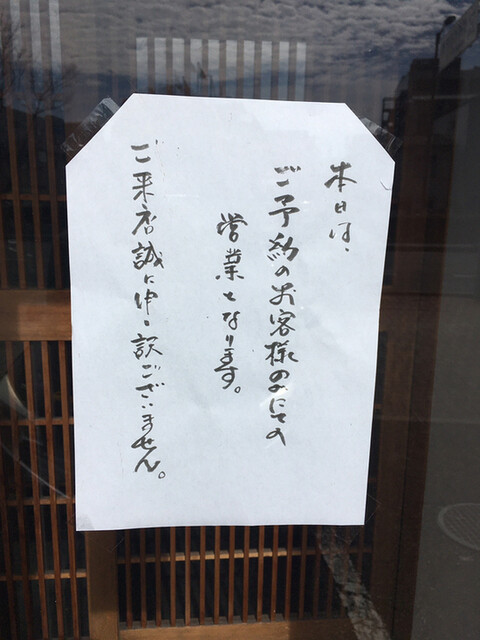 本日は、
ご予約のお客様のみにての
営業となります。
ご来店誠に申し訳ございません。